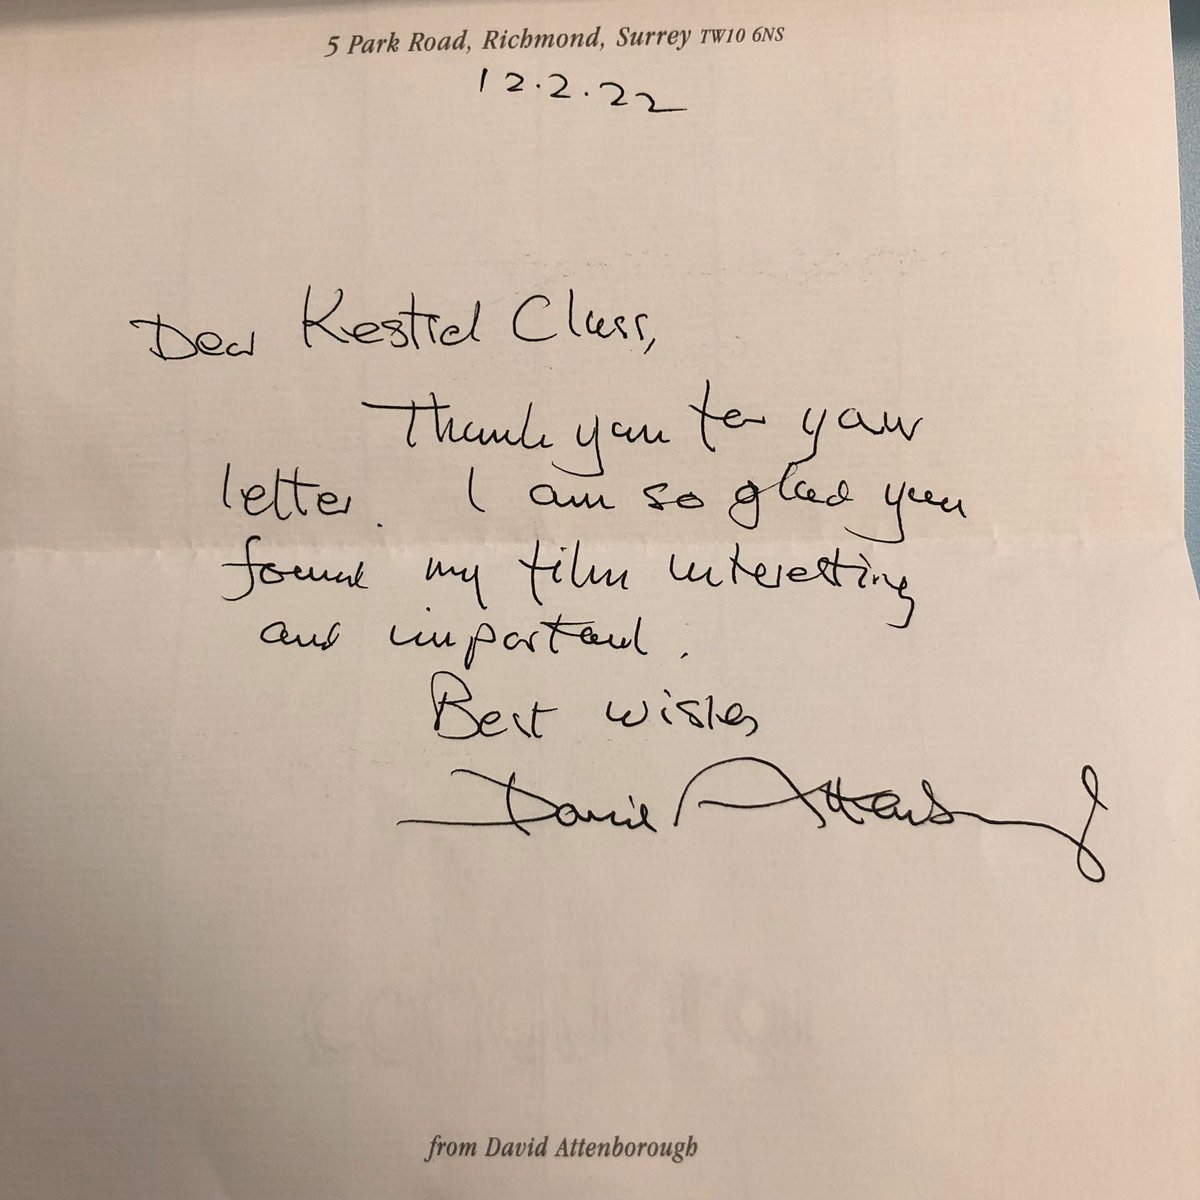 5 Park Road, Richmond, Surrey TW10 6NS
12.2.22
Dear Kestrel Class,
Thank you for your
letter. I am so glad you
found my film interesting
and important.
Best wishes
David Attenborough
from David Attenborough